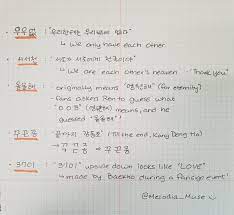 · 우우없 : "우리한텐 우리밖에 없다"
↳ We only have each other
· 서서천 : "서로가 서로에게 천국이다"
↳ We are each other's heaven "Thank you"
· : originally means "영원해" (for eternity)
Fans asked Ren to guess what
"ㅇㅇㅎ" means, and he
guessed
· ㄲㄲㄷ : 끝까지 강동호 (Till the end, Kang Dong Ho)
↳
· 3707 : "3707" upside down looks like "LOVE"
↳ made by Baekho during a fansign event!
@Melodia_Muse